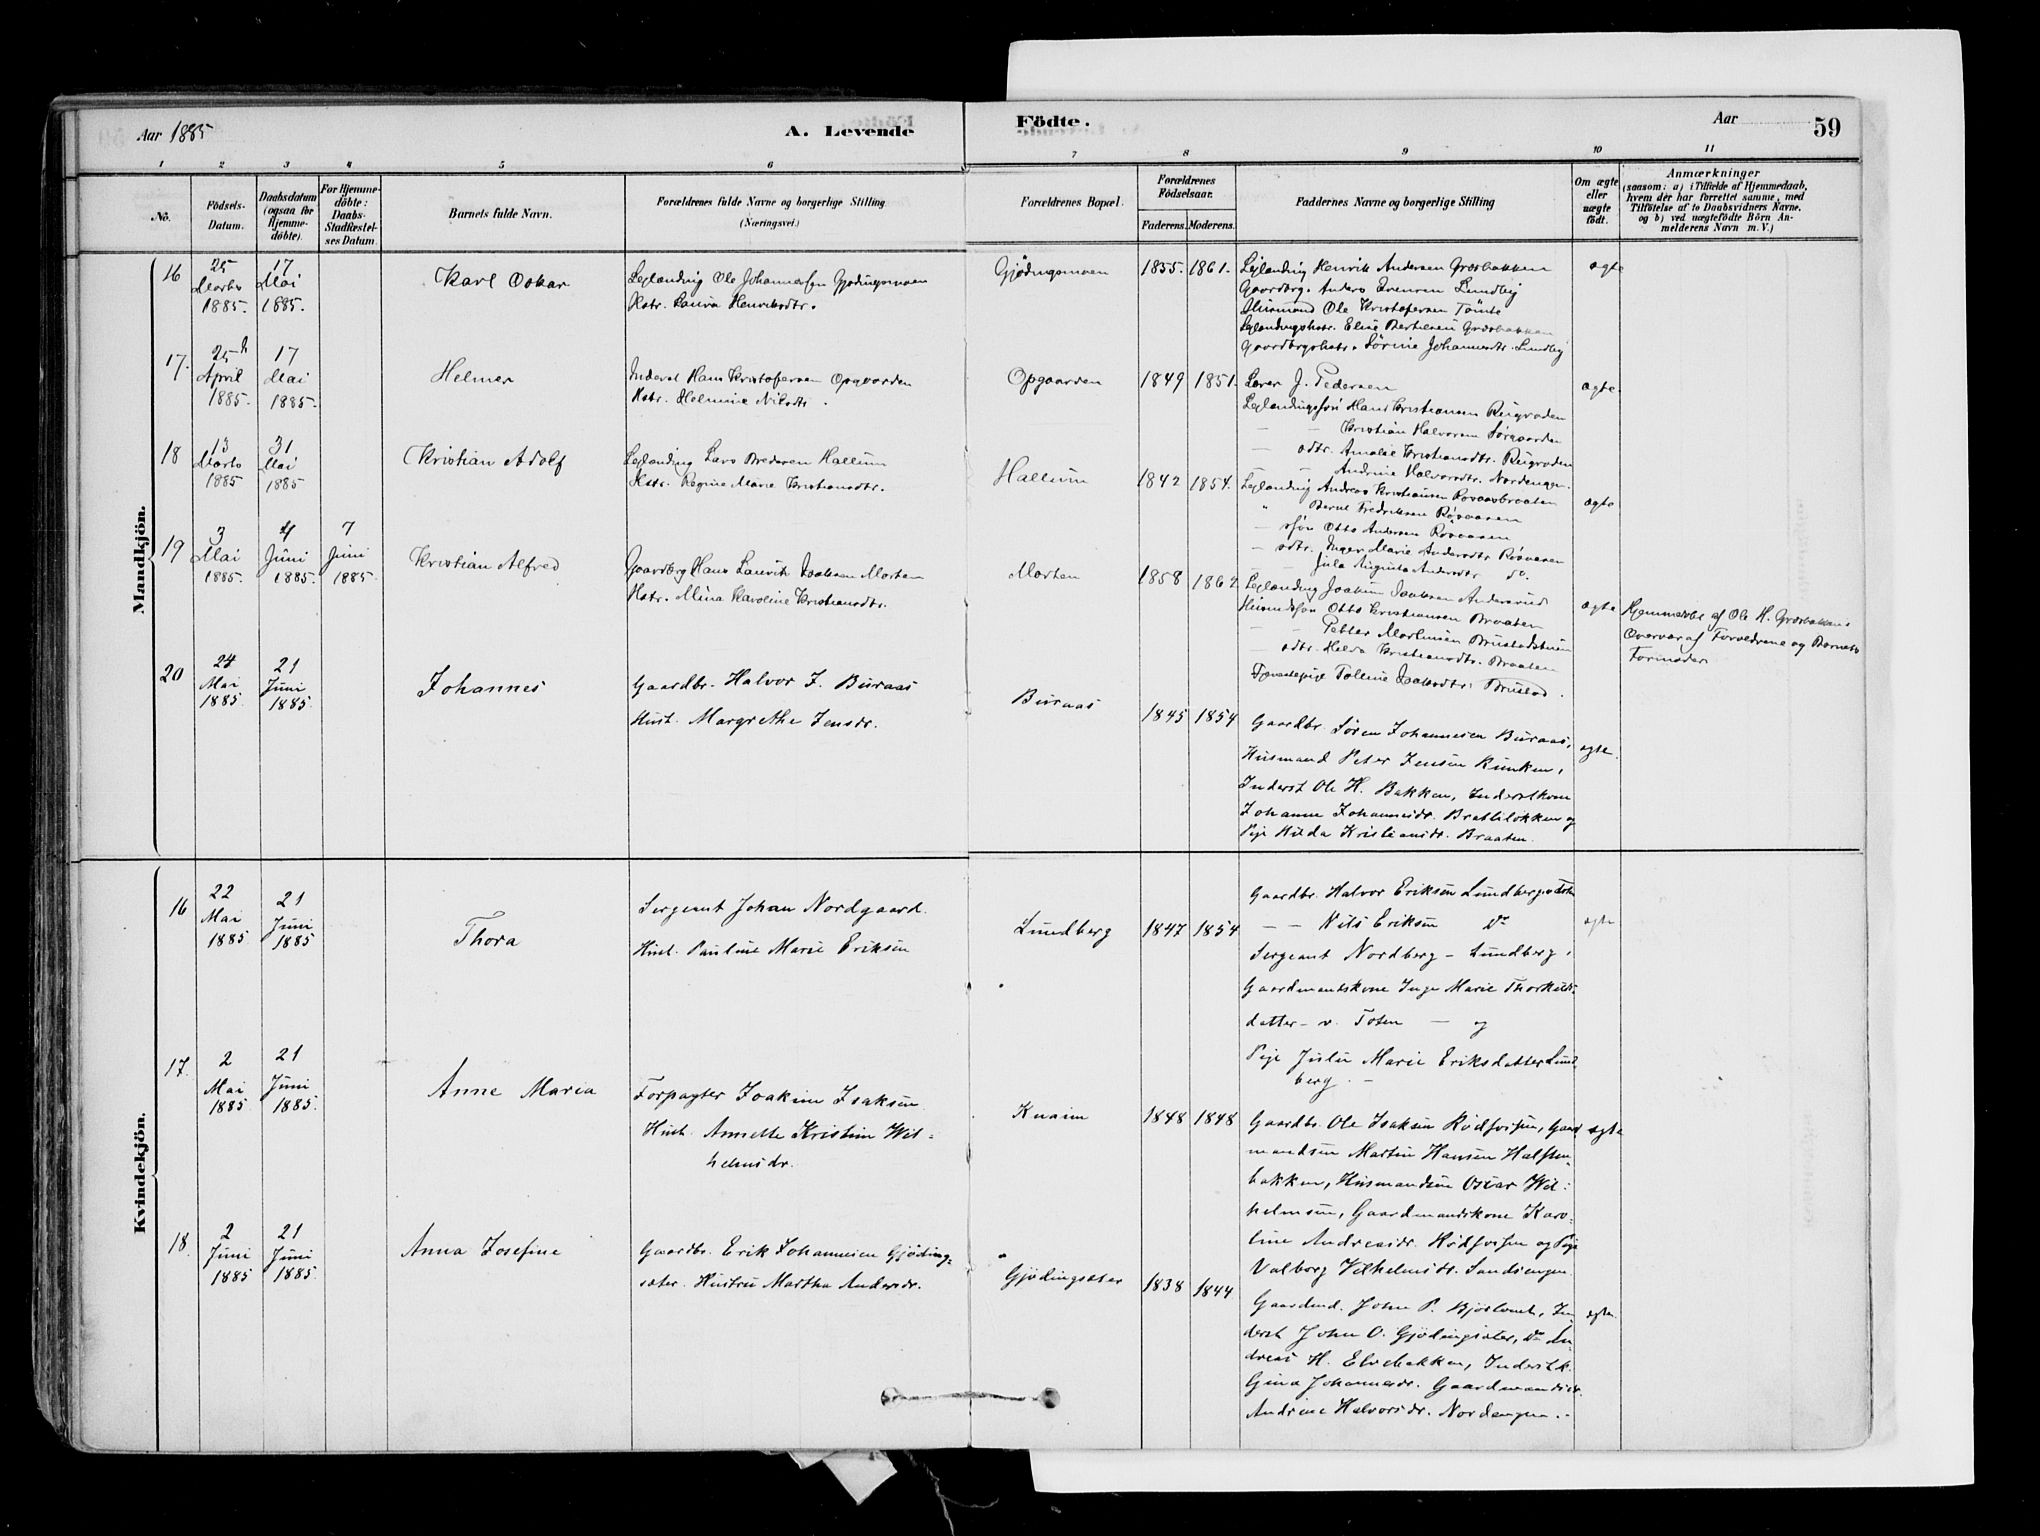 Aar 1885
A. Levende
Födte.
Aar
59
1 2 3 4 5 6 7 8 9 10 11
No.
Födsels-
Datum.
Daabsdatum
(ogsaa for
Hjemme-
döbte).
For Hjemme-
döbte:
Daabs-
Stadfæstel-
ses Datum.
Barnets fulde Navn.
Forældrenes fulde Navne og borgerlige Stilling
(Næringsvei.)
Forældrenes Bopæl.
Forældrenes
Födselsaar.
Faderens. Moderens.
Faddernes Navne og borgerlige Stilling
Om ægte
eller
uægte
födt.
Anmærkninger
(saasom: a) i Tilfælde af Hjemmedaab,
hvem der har forrettet samme, med
Tilföielse af to Daabsvidners Navne,
og b) ved uægtefödte Börn An-
melderens Navn m. V.)
Mandkjön.
16
25
Marts
1885.
17
Mai
1885.
Karl Oskar
Lejlænding Ole Johannesen Gjødingsmoen
Hstr. Laura Henriksdtr.
Gjødingsmoen
1855. 1861.
Lejlænding Henrik Andersen Græsbakken
Gaardbrg. Anders Evensen Lundbÿ
Husmand Ole Kristofersen Tømte
Lejlændingshstr. Elise Bertelsen Græsbakken
Gaardbrgshstr. Sørine Johannesdtr. Lundbÿ
ægte
17.
25
April
1885.
17
Mai
1885.
Helmer
Inderst Hans Kristofersen Opgaarden
Hstr. Helmine Nilsdtr.
Opgaarden
1849 1851.
Lærer J. Pedersen
Lejlændingssøn Hans Kristiansen Rugroden
— — Kristian Halvorsen Sørgaarden
— odtr. Amalie Kristiansdtr. Rugroden
Andrine Halvorsdtr. Nordengen.
ægte
18
13
Marts
1885
31
Mai
1885
Kristian Adolf
Lejlænding Lars Bredesen Hallum
Hstr. Regine Marie Kristiansdtr.
Hallum
1842 1854.
Lejlænding Andreas Kristiansen Rosaasbraaten
" Bernt Fredriksen Røsaasen
— ssøn Otto Andersen Røsaasen
— odtr. Inger Marie Andersdtr. Røsaasen
— Jula Augusta Andersdtr. do.
ægte
19
3
Mai
1885.
4
Juni
1885.
7
Juni
1885
Kristian Alfred
Gaardbrg Hans Laurits Isaksen Morten
Hstr. Mina Karoline Kristiansdtr.
Morten
1858 1862
Lejlænding Joakim Isaksen Andersrud
Husmdssøn Otto Kristiansen Braaten
— — Petter Martinsen Brustadstuen
— odtr. Helda Kristiansdtr. Braaten
Tjenestepige Tolline Isaksdtr. Brustad.
ægte
Hjemmedøbt af Ole H. Græsbakken i
Overvær af Forældrene og Barnets
Formoder
20
24
Mai
1885
21
Juni
1885
Johannes
Gaardbr. Halvor J. Buraas
Hust. Margrethe Jensdr.
Buraas
1845 1854
Gaardbr. Søren Johannesen Buraas,
Husmand Peter Jensen Runken,
Inderst Ole H. Bakken, Inderstkone
Johanne Johannesdr. Bratteløkken og
Pige Hilda Kristiansdr. Braaten.
ægte.
Kvindekjön.
16
22
Mai
1885
21
Juni
1885
Thora
Sergeant Johan Nordgaard.
Hust. Pauline Marie Eriksen
Lundberg
1847 1854
Gaardbr. Halvor Eriksen Lundberg v. Toten
— — Nils Eriksen Do
Sergeant Nordberg – Lundberg,
Gaardmandskone Inge Marie Thorkilds-
datter – v. Toten — og
Pige Julie Marie Eriksdatter Lund-
berg. –
ægte
17.
2
Mai
1885
21
Juni
1885.
Anne Maria
Forpagter Joakim Isaksen
Hust. Annette Kristine Wil-
helmsdr.
Knaim
1848 1848
Gaardbr. Ole Isaksen Rødsvisen, Gaard-
mandsen Martin Hansen Halsten-
bakken, Husmandsen Oscar Wil-
helmsen, Gaardmandskone Karo-
line Andreasdr. Hødsvisen og Pige
Valborg Vilhelmsdr. Sandsengen
ægte
18.
2
Juni
1885
21
Juni
1885
Anna Josefine
Gaardbr. Erik Johannesen Gjøding-
sæter. Hustru Martha Andersdr.
Gjødingsæter
1838 1844
Gaardmd. John P. Bjørtomt, In-
derst John O. Gjødingsæter, Do An-
dreas H. Elvebakken, Inderstk.
Gina Johannesdr. Gaardmandsk.
Andrine Halvorsdr. Nordengen. –
ægte